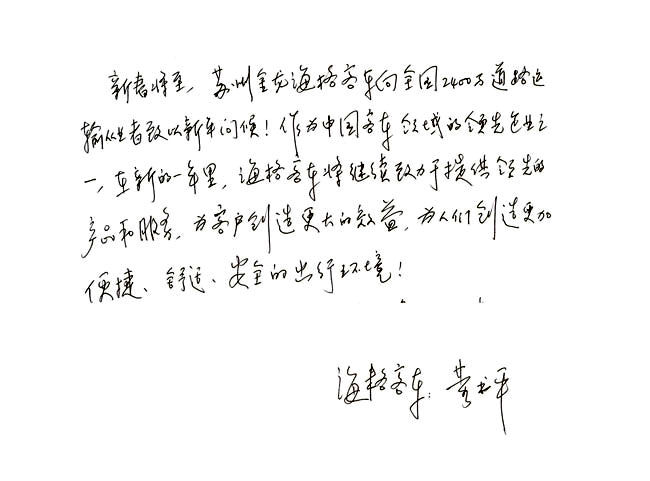 新春将至，苏州金龙海格客车向全国2400万道路运
输从业者致以新年问候！作为中国客车领域的领先企业之
一，在新的一年里，海格客车将继续致力于提供领先的
产品和服务，为客户创造更大的效益，为人们创造更加
便捷、舒适、安全的出行环境！
海格客车：黄书平